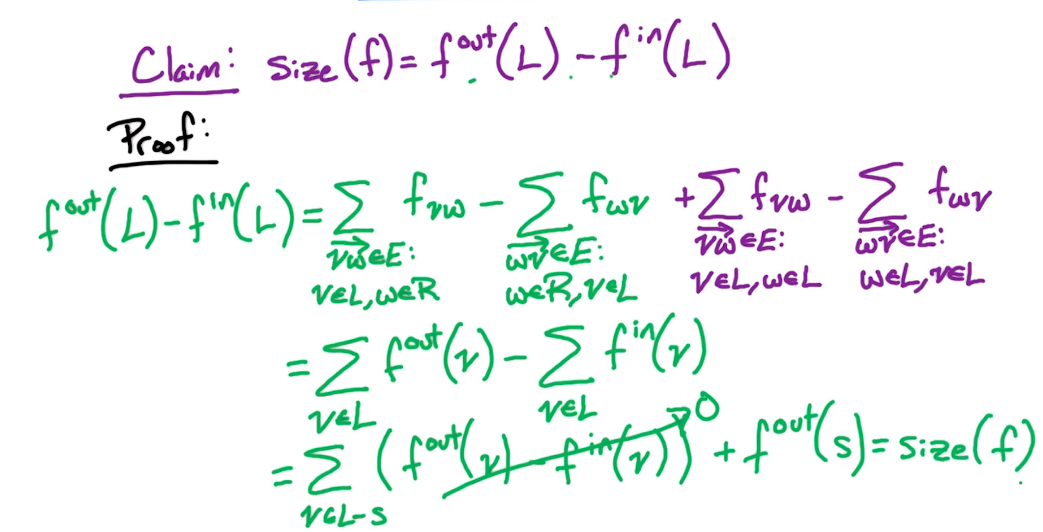 Claim: size(f) = f^out(L) - f^in(L)
Proof:
f^out(L) - f^in(L) = ∑_{\overrightarrow{vw}∈E: v∈L, w∈R} f_{vw} - ∑_{\overrightarrow{wv}∈E: w∈R, v∈L} f_{wv} + ∑_{\overrightarrow{vw}∈E: v∈L, w∈L} f_{vw} - ∑_{\overrightarrow{wv}∈E: w∈L, v∈L} f_{wv}
= ∑_{v∈L} f^out(v) - ∑_{v∈L} f^in(v)
= ∑_{v∈L-s} (f^out(v) - f^in(v)) → 0 + f^out(s) = size(f)